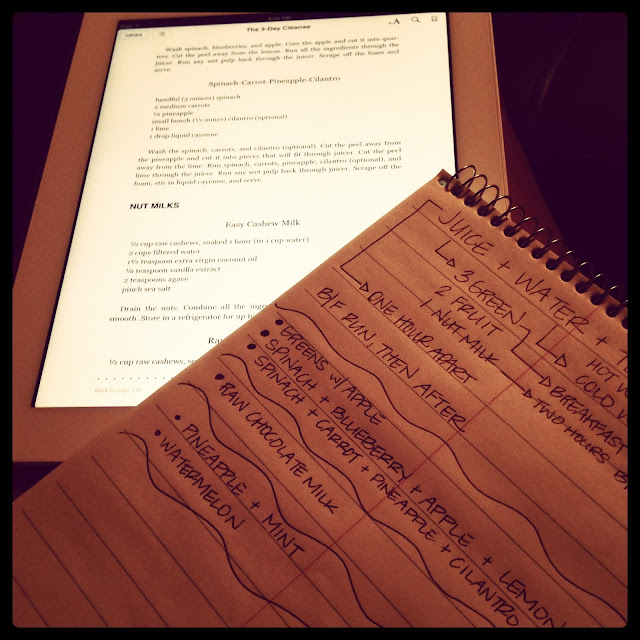 Library
The 3-Day Cleanse
Wash spinach, blueberries, and apple. Core the apple and cut it into quar-
ters. Cut the peel away from the lemon. Run all the ingredients through the
juicer. Run any wet pulp back through the juicer. Scrape off the foam and
serve.
Spinach-Carrot-Pineapple-Cilantro
handful (3 ounces) spinach
2 medium carrots
¼ pineapple
small bunch (½ ounce) cilantro (optional)
1 lime
1 drop liquid cayenne
Wash the spinach, carrots, and cilantro (optional). Cut the peel away from
the pineapple and cut it into pieces that will fit through juicer. Cut the peel
away from the lime. Run spinach, carrots, pineapple, cilantro (optional), and
lime through the juicer. Run any wet pulp back through the juicer. Scrape off the
foam, stir in liquid cayenne, and serve.
NUT MILKS
Easy Cashew Milk
½ cup raw cashews, soaked 1 hour (in 1 cup water)
2 cups filtered water
1½ teaspoon extra virgin coconut oil
¼ teaspoon vanilla extract
2 teaspoons agave
pinch sea salt
Drain the nuts. Combine all the
smooth. Store in a refrigerator for up
½ cup raw cashews,
Back to page
JUICE + WATER +
3 GREEN
2 FRUIT
NUT MILK
ONE HOUR APART
B/F RUN, THEN AFTER
HOT
COLD
BREAKFAST
TWO HOURS
GREENS W/APPLE
SPINACH + BLUEBERRY + APPLE + LEMON
SPINACH + CARROT + PINEAPPLE + CILANTRO
RAW CHOCOLATE MILK
PINEAPPLE + MINT
WATERMELON